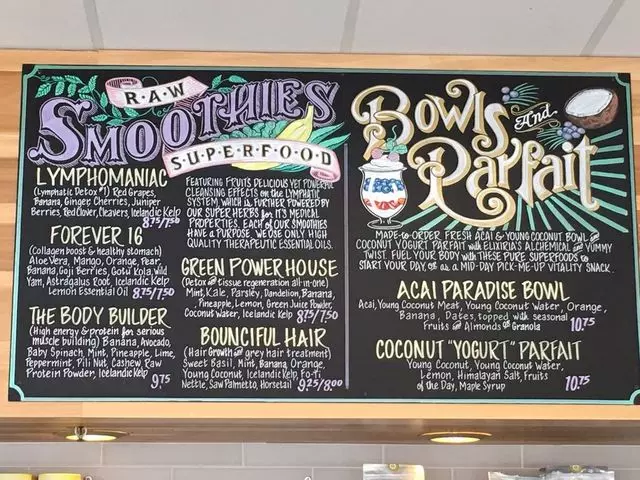 R·A·W
SMOOTHIES
SUPERFOOD
LYMPHOMANIAC
(Lymphatic Detox #1) Red Grapes,
Banana, Ginger Cherries, Juniper
Berries, Red Clover, Cleavers, Icelandic Kelp
8.75/7.50
FOREVER 16
(Collagen boost & healthy stomach)
Aloe Vera, Mango, Orange, Pear,
Banana, Goji Berries, Gotu Kola, Wild
Yam, Astragalus Root, Icelandic Kelp
Lemon Essential Oil 8.75/7.50
THE BODY BUILDER
(High energy & protein for serious
muscle building) Banana, Avocado,
Baby Spinach, Mint, Pineapple, Lime,
Peppermint, Pili Nut, Cashew, Raw
Protein Powder, Icelandic Kelp
9.75
FEATURING FRUITS DELICIOUS YET POWERFUL
CLEANSING EFFECTS on the LYMPHATIC
SYSTEM, WHICH is FURTHER POWERED BY
OUR SUPER HERBS for IT'S MEDICAL
PROPERTIES. EACH of OUR SMOOTHIES
HAVE A PURPOSE. WE USE ONLY HIGH
QUALITY THERAPEUTIC ESSENTIAL OILS.
GREEN POWER HOUSE
(Detox and tissue regeneration all-in-one)
Mint, Kale, Parsley, Dandelion, Banana,
Pineapple, Lemon, Green Juice Powder,
Coconut Water, Icelandic Kelp 8.75/7.50
BOUNCIFUL HAIR
(Hair Growth and grey hair treatment)
Sweet Basil, Mint, Banana, Orange,
Young Coconut, Icelandic Kelp, Fo-Ti
Nettle, Saw Palmetto, Horsetail 9.25/8.00
Bowls
And
Parfait
MADE-to-ORDER FRESH ACAI & YOUNG COCONUT BOWL and
COCONUT YOGURT PARFAIT with ELIXIRIA'S ALCHEMICAL and YUMMY
TWIST. FUEL YOUR BODY with THESE PURE SUPERFOODS to
START YOUR DAY, or as a MID-DAY PICK-ME-UP VITALITY SNACK.
ACAI PARADISE BOWL
Acai, Young Coconut Meat, Young Coconut Water, Orange,
Banana, Dates, topped with seasonal
Fruits and Almonds or Granola 10.75
COCONUT "YOGURT" PARFAIT
Young Coconut, Young Coconut Water,
Lemon, Himalayan Salt, Fruits
of the Day, Maple Syrup 10.75